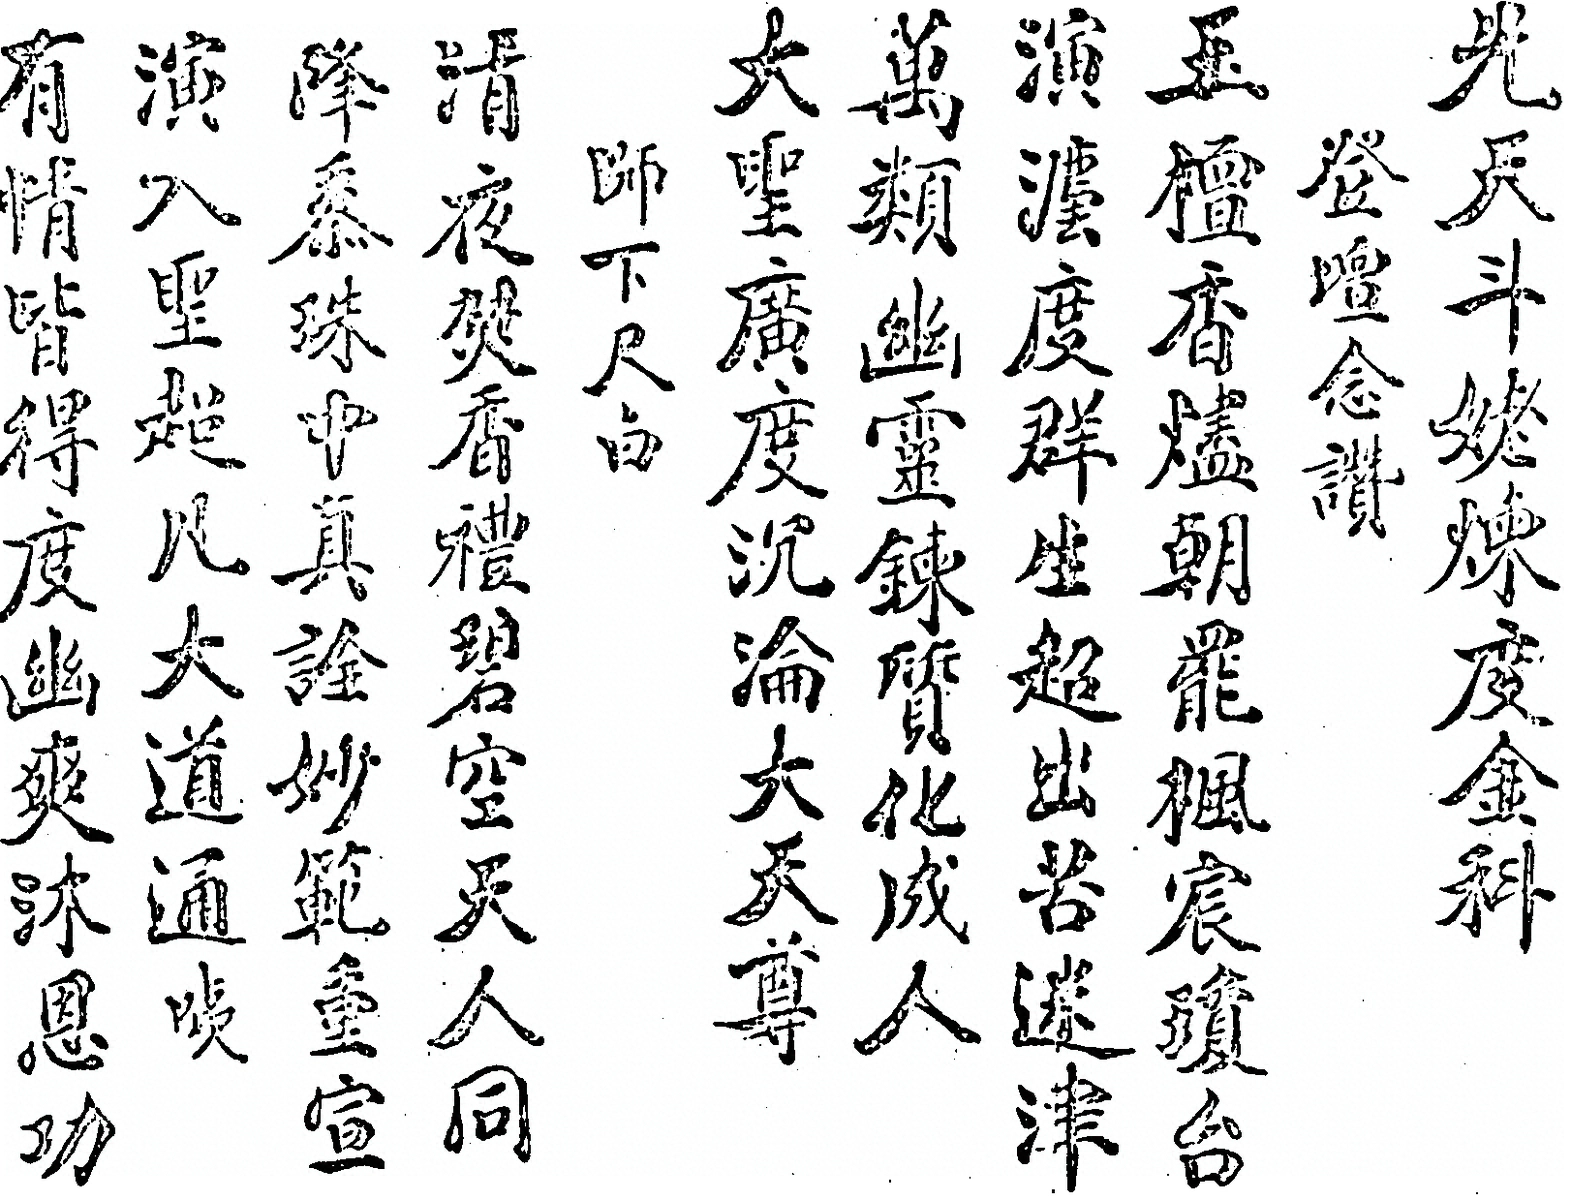 先天斗姥煉度金科
登壇念讚
玉檀香爐朝罷楓宸瓊台
演澐度群生超出苦迷津
萬類幽靈鍊質化成人
大聖廣度沉淪大天尊
師下尺白
清夜焚香禮碧空天人同
降黍珠中真詮妙範重宣
演入聖超凡大道通
有情皆得度幽爽沐恩功